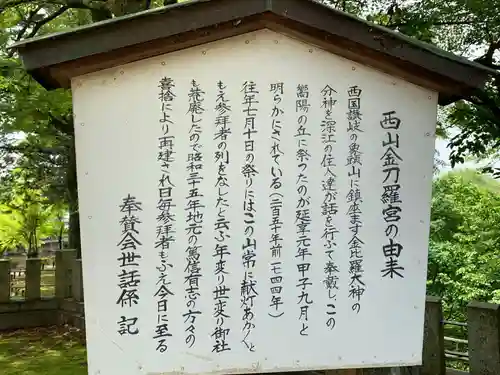 西山金刀羅宮の由来
西国讃岐の象頭山に鎮座ます金比羅大神の
分神を深江の住人達が話を行ふて奉戴しこの
嵩陽の丘に祭つたのが延享元年甲子九月と
明らかにされている(二百五十年前一七四四年)
往年十月十日の祭りにはこの山常に献灯あかあかと
もえ参拝者の列をなしたと云ふ年変り世変り御社
も荒廃したので昭和三十五年地元の篤信有志の方々の
喜捨により再建され日毎参拝者もふえ今日に至る
奉賛会世話係 記